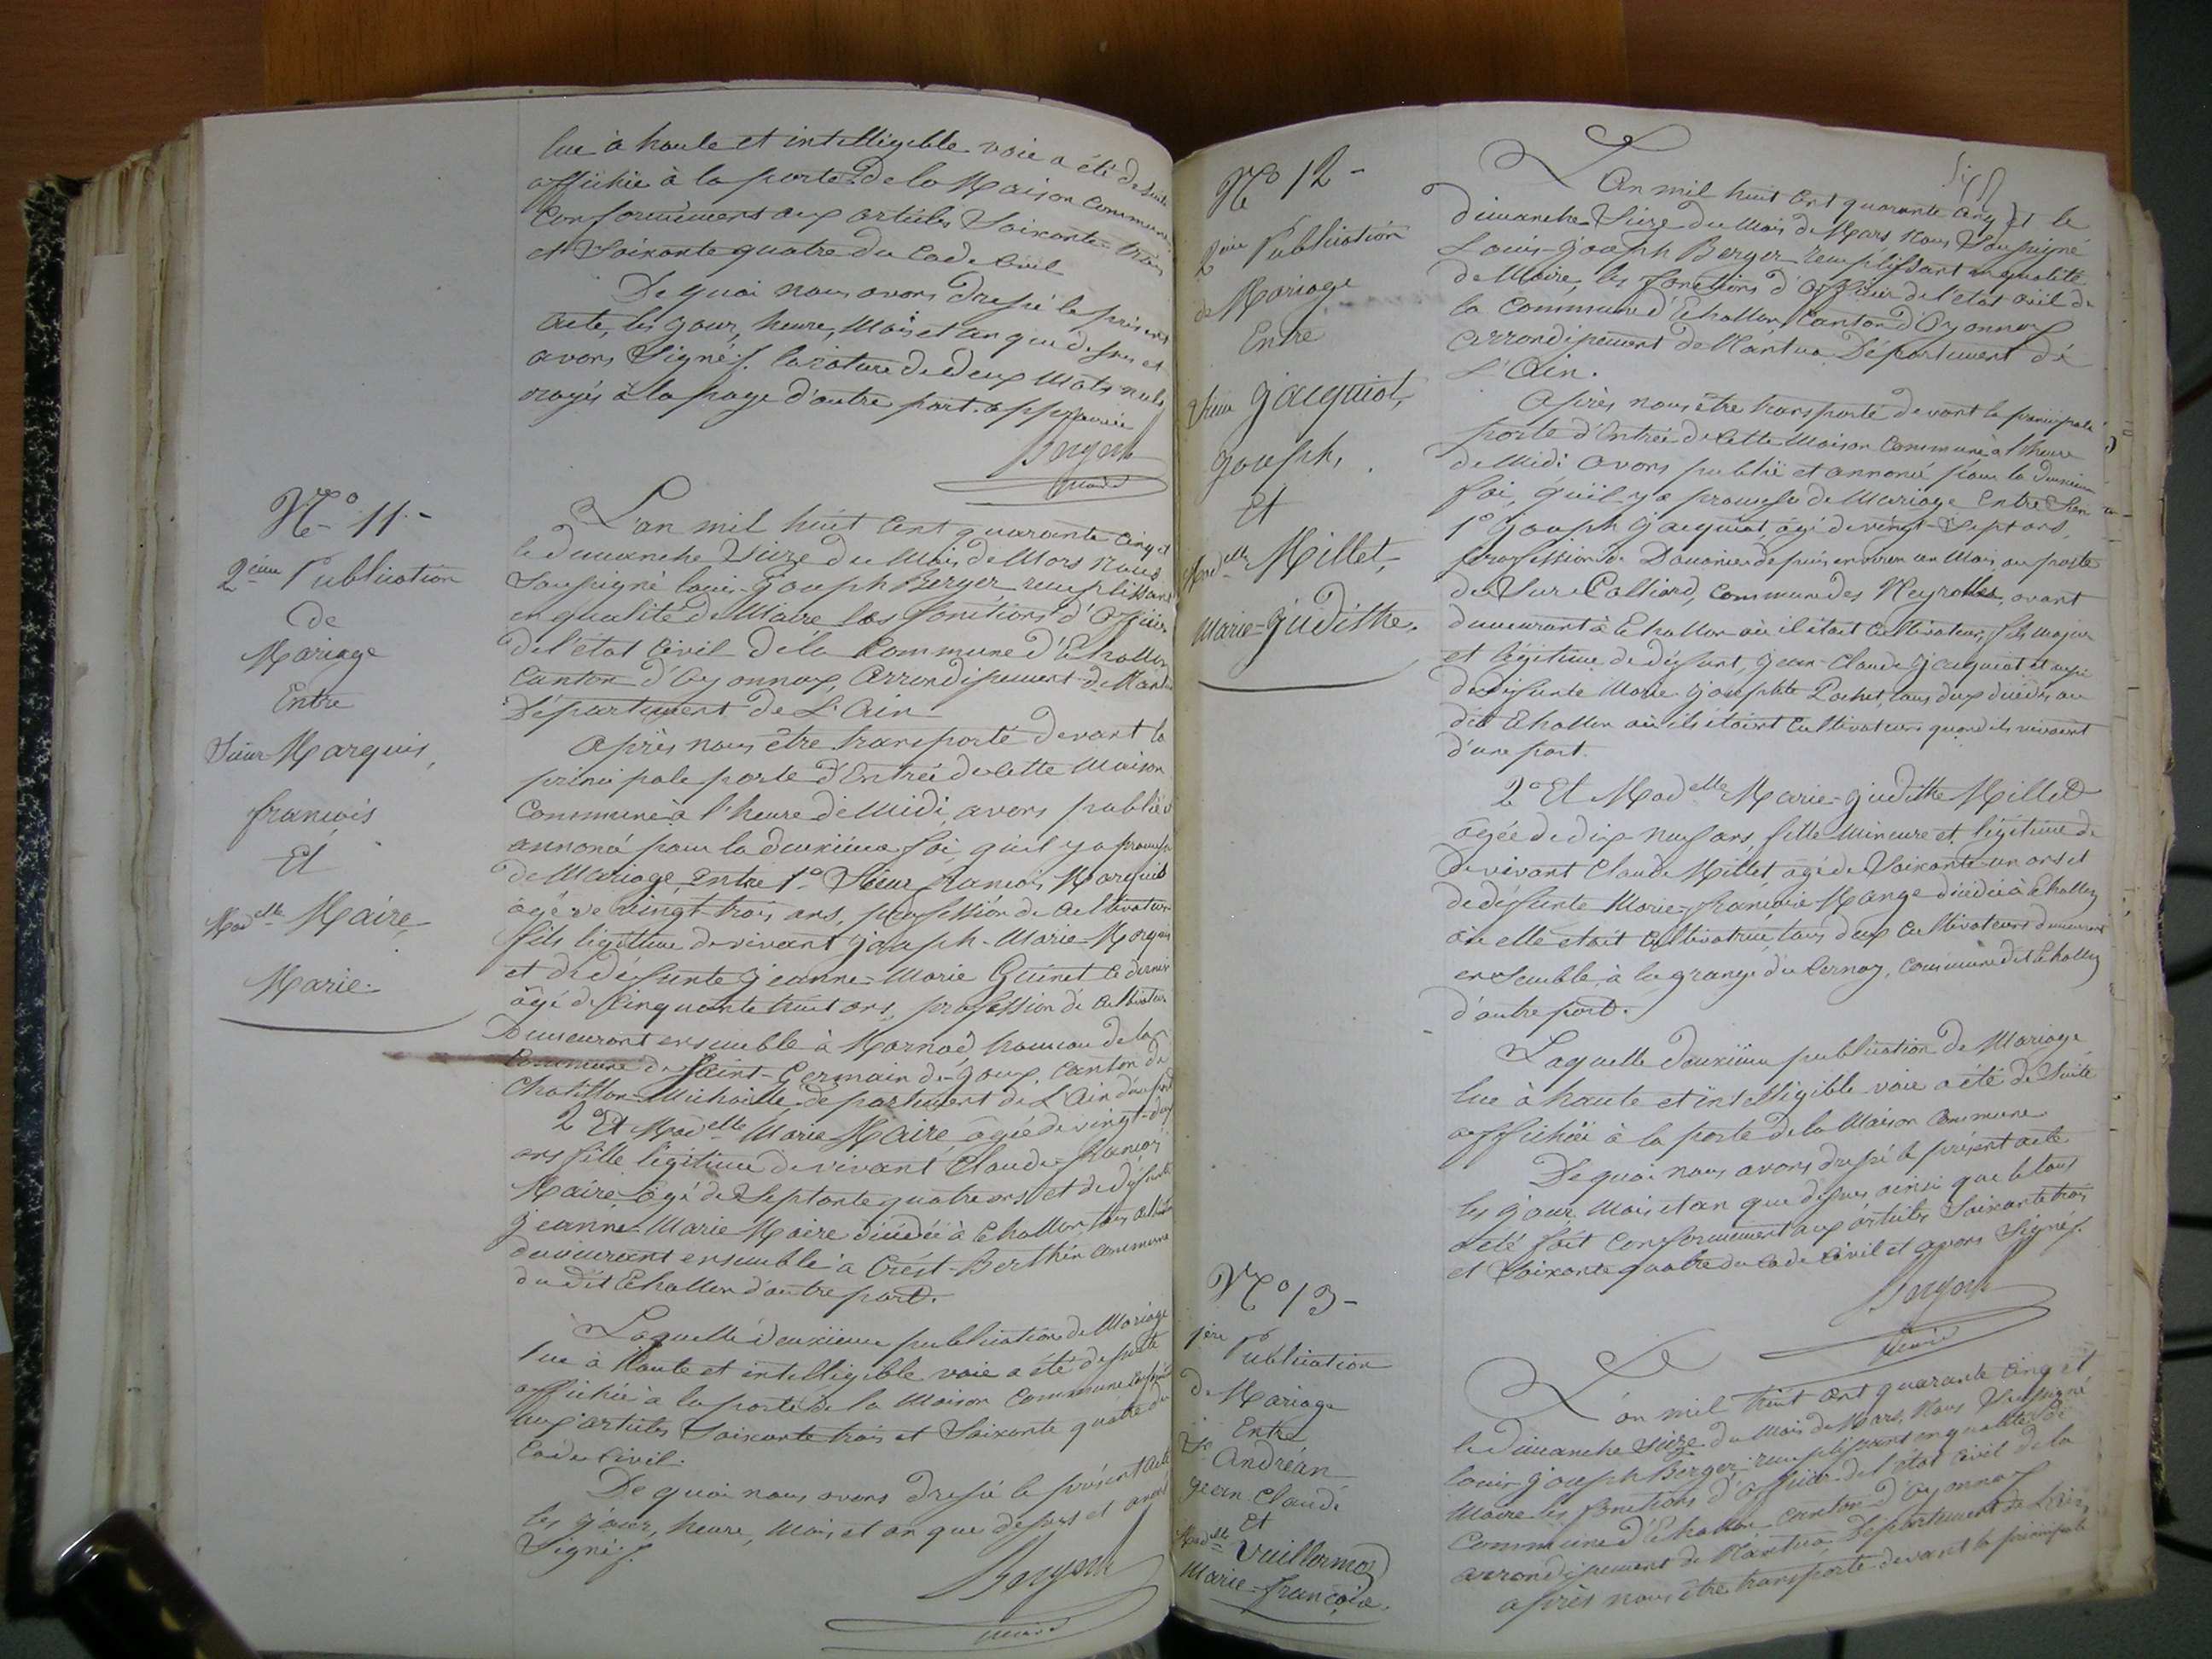 lue à haute et intelligible voie a été de suite
affichée à la porte de la Maison Commune
Conformément aux articles Soixante-trois
et Soixante quatre du Code Civil
De quoi nous avons dressé le présent
acte, les jour, heure, Mois et an que dessus et
avons Signé/. la rature de deux Mots nuls
rayés à la page d'autre part. approuvée
Berger
Maire
N.o 11.-
2eime Publication
de
Mariage
Entre
Sieur Marquis,
francois
Et
Madelle Maire
Marie.
L'an mil huit cent quarante cinq et
le dimanche Seize du Mois de Mars Nous
Soussigné louis-joseph Berger remplissant
en qualité de Maire les fonctions d'Officier
de l'état Civil de la Commune d'Echallon
Canton d'Oyonnax, Arrondissement de Nantua
Département de L'Ain
Après nous être transporté devant la
principale porte d'Entrée de cette Maison
Commune à l'heure de Midi, avons publié et
annoncé pour la deuxième foi, qu'il y a promesse
de Mariage, Entre 1.o Sieur francois Marquis
âgé de vingt-trois ans, profession de Cultivateur
fils légitime de vivant joseph-Marie-Marquis
et de défunte jeanne-Marie Guinet ce dernier
âgé de Cinquante huit ans, profession de Cultivateur
Demeurant ensemble à Marnod hameau de la
Commune de Saint-Germain de joux, Canton de
Chatillon-Michaille département de L'Ain d'une part
2 Et Madelle Marie Maire âgée de vingt-deux
ans fille légitime de vivant Claude-francois
Maire, âgé de Septante quatre ans et de défunte
jeanne-Marie Maire décédée à Echallon, tous
demeurant ensemble à Crêt-Berthin Commune
du dit Echallon d'autre part.
Laquelle deuxième publication de Mariage
lue à haute et intelligible voie a été de suite
affichée à la porte de la Maison Commune
aux articles Soixante trois et Soixante quatre du
Code Civil.
De quoi nous avons dressé le présent acte
les jour, heure, Mois et an que dessus et avons
Signé/.
Berger
Maire
N.o 12-
2eime Publication
de Mariage
Entre
Sieur jacquiot,
joseph,
Et
Madelle Millet,
Marie-judithe.
L'An mil huit cent quarante cinq et le
dimanche Seize du Mois de Mars Nous Soussigné
Louis-joseph Berger remplissant en qualité
de Maire, les fonctions d'Officier de l'état civil de
la Commune d'Echallon Canton d'Oyonnax
Arrondissement de Nantua Département de
L'Ain.
Après nous être transporté devant la principale
porte d'Entrée de cette Maison Commune à l'heure
de Midi avons publié et annoncé pour la deuxième
foi, qu'il y a promesse de Mariage Entre Sieur
1.o joseph jacquiot, âgé de vingt-Sept ans,
profession de Douanier depuis environ un Mois, au poste
de Sur-Colliard, Commune des Neyrolles, avant
demeurant à Echallon où il était Cultivateur, fils Majeur
et légitime de défunt, jean-Claude jacquiot et aussi
de défunte Marie-josephte Pochet, tous deux décédés au
dit Echallon où ils étaient Cultivateurs quand ils vivaient
d'une part.
2.o Et Madelle Marie-judithe Millet
âgée de dix-neuf ans, fille Mineure et légitime de
de vivant Claude Millet, âgé de Soixante-un ans et
de défunte Marie-françoise Mange décédée à Echallon
où elle était Cultivatrice, tous deux Cultivateurs demeurant
ensemble à la grange du Cernay, Commune dit Echallon
d'autre part.
Laquelle deuxième publication de Mariage
lue à haute et intelligible voie a été de Suite
affichée à la porte de la Maison Commune
De quoi nous avons dressé le présent acte
les jour Mois et an que dessus ainsi que le tout
a été fait Conformément aux articles Soixante trois
et Soixante quatre du Code Civil et avons Signé/.
Berger
Maire
N.o 13-
1ère Publication
de Mariage
Entre
Sr Andréan
jean Claude
et
Madelle Vuillermoz
Marie-françoise.
L'an mil huit cent quarante cinq et
le dimanche Seize du Mois de Mars, Nous Soussigné
louis-joseph Berger remplissant en qualité de
Maire les fonctions d'officier de l'état Civil de la
Commune d'Echallon Canton d'Oyonnax
arrondissement de Nantua Département de L'Ain,
après nous être transporté devant la principale